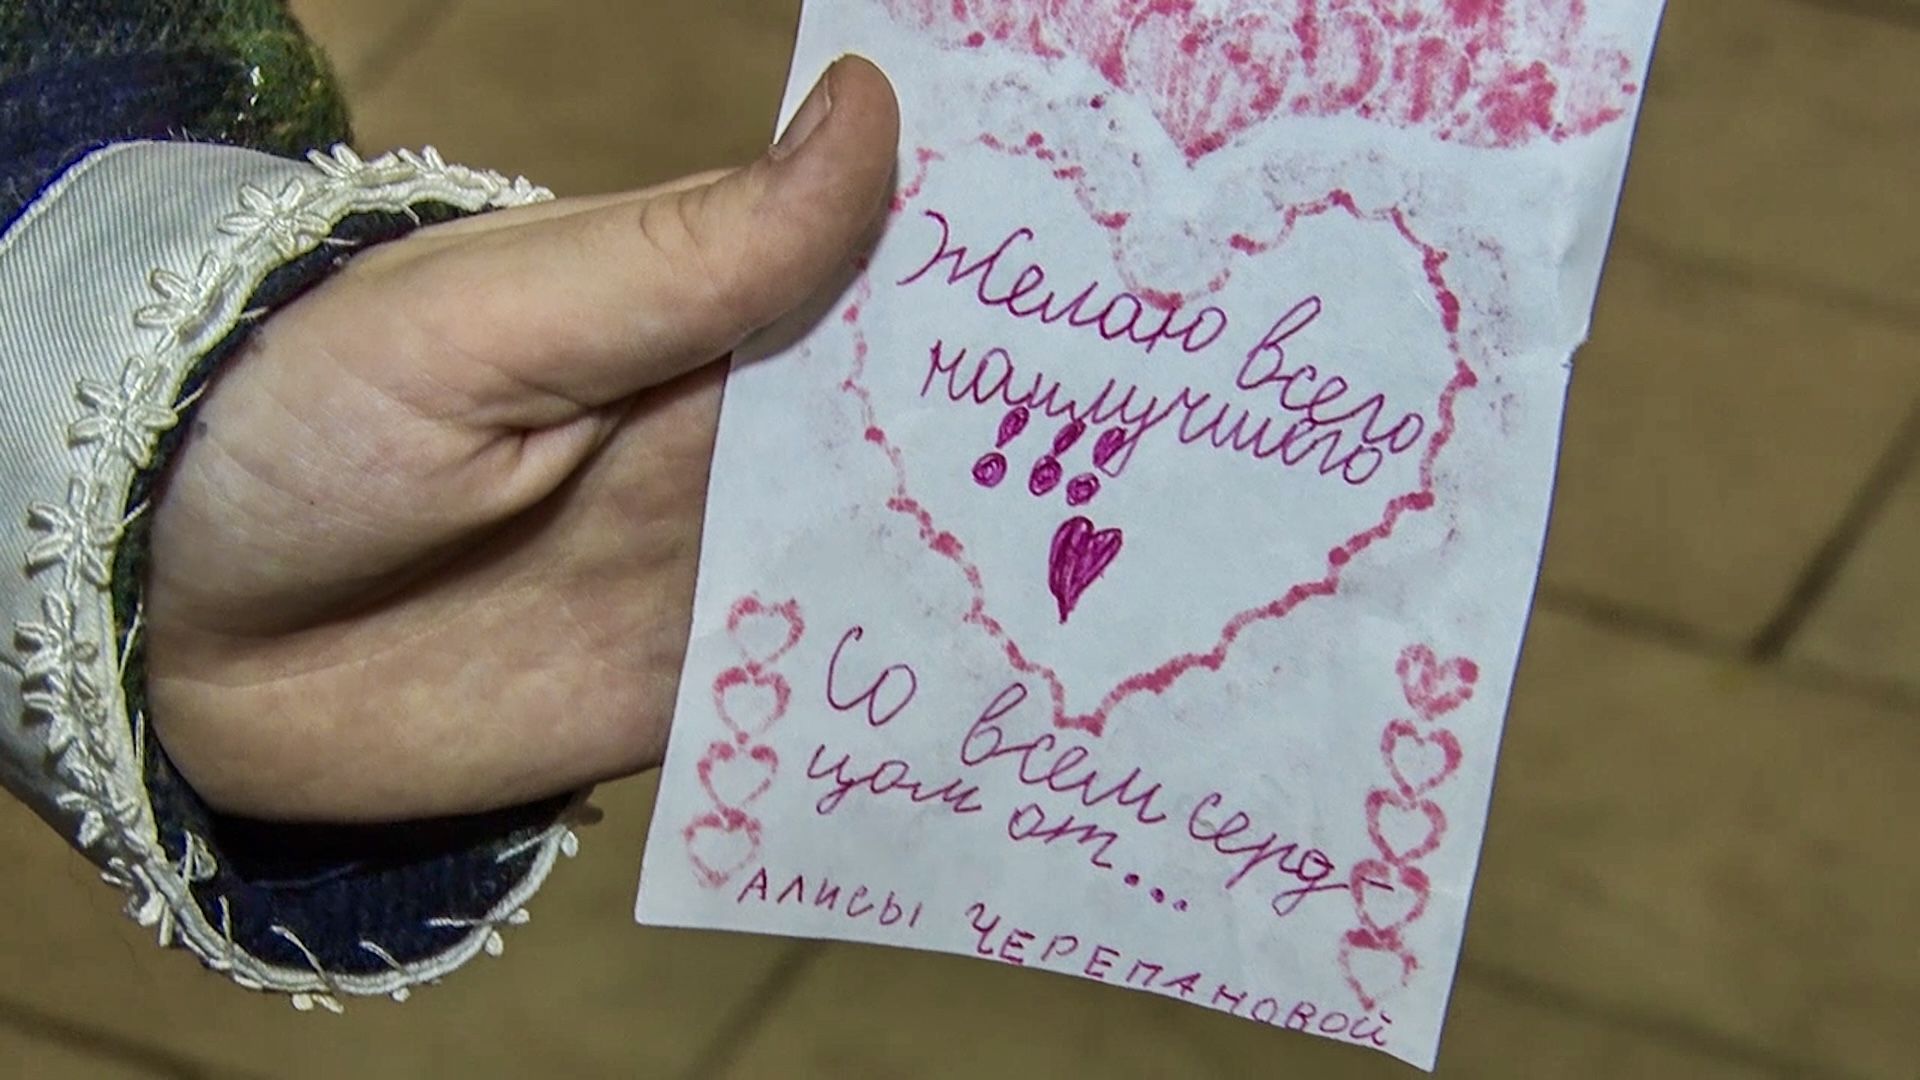 Желаю всего
наилучшего
!!!
Со всем серд-
цом от...
АЛИСЫ ЧЕРЕПАНОВОЙ